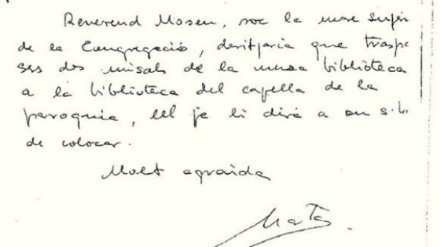 Reverend Mossen, soc la mare supr
de la Congregació, desitjaria que traspa
ses dos misals de la meva biblioteca
a la biblioteca del capella de la
paroquia, ell ja li dirá a on s'h
de colocar.
Molt agraida
Marta.